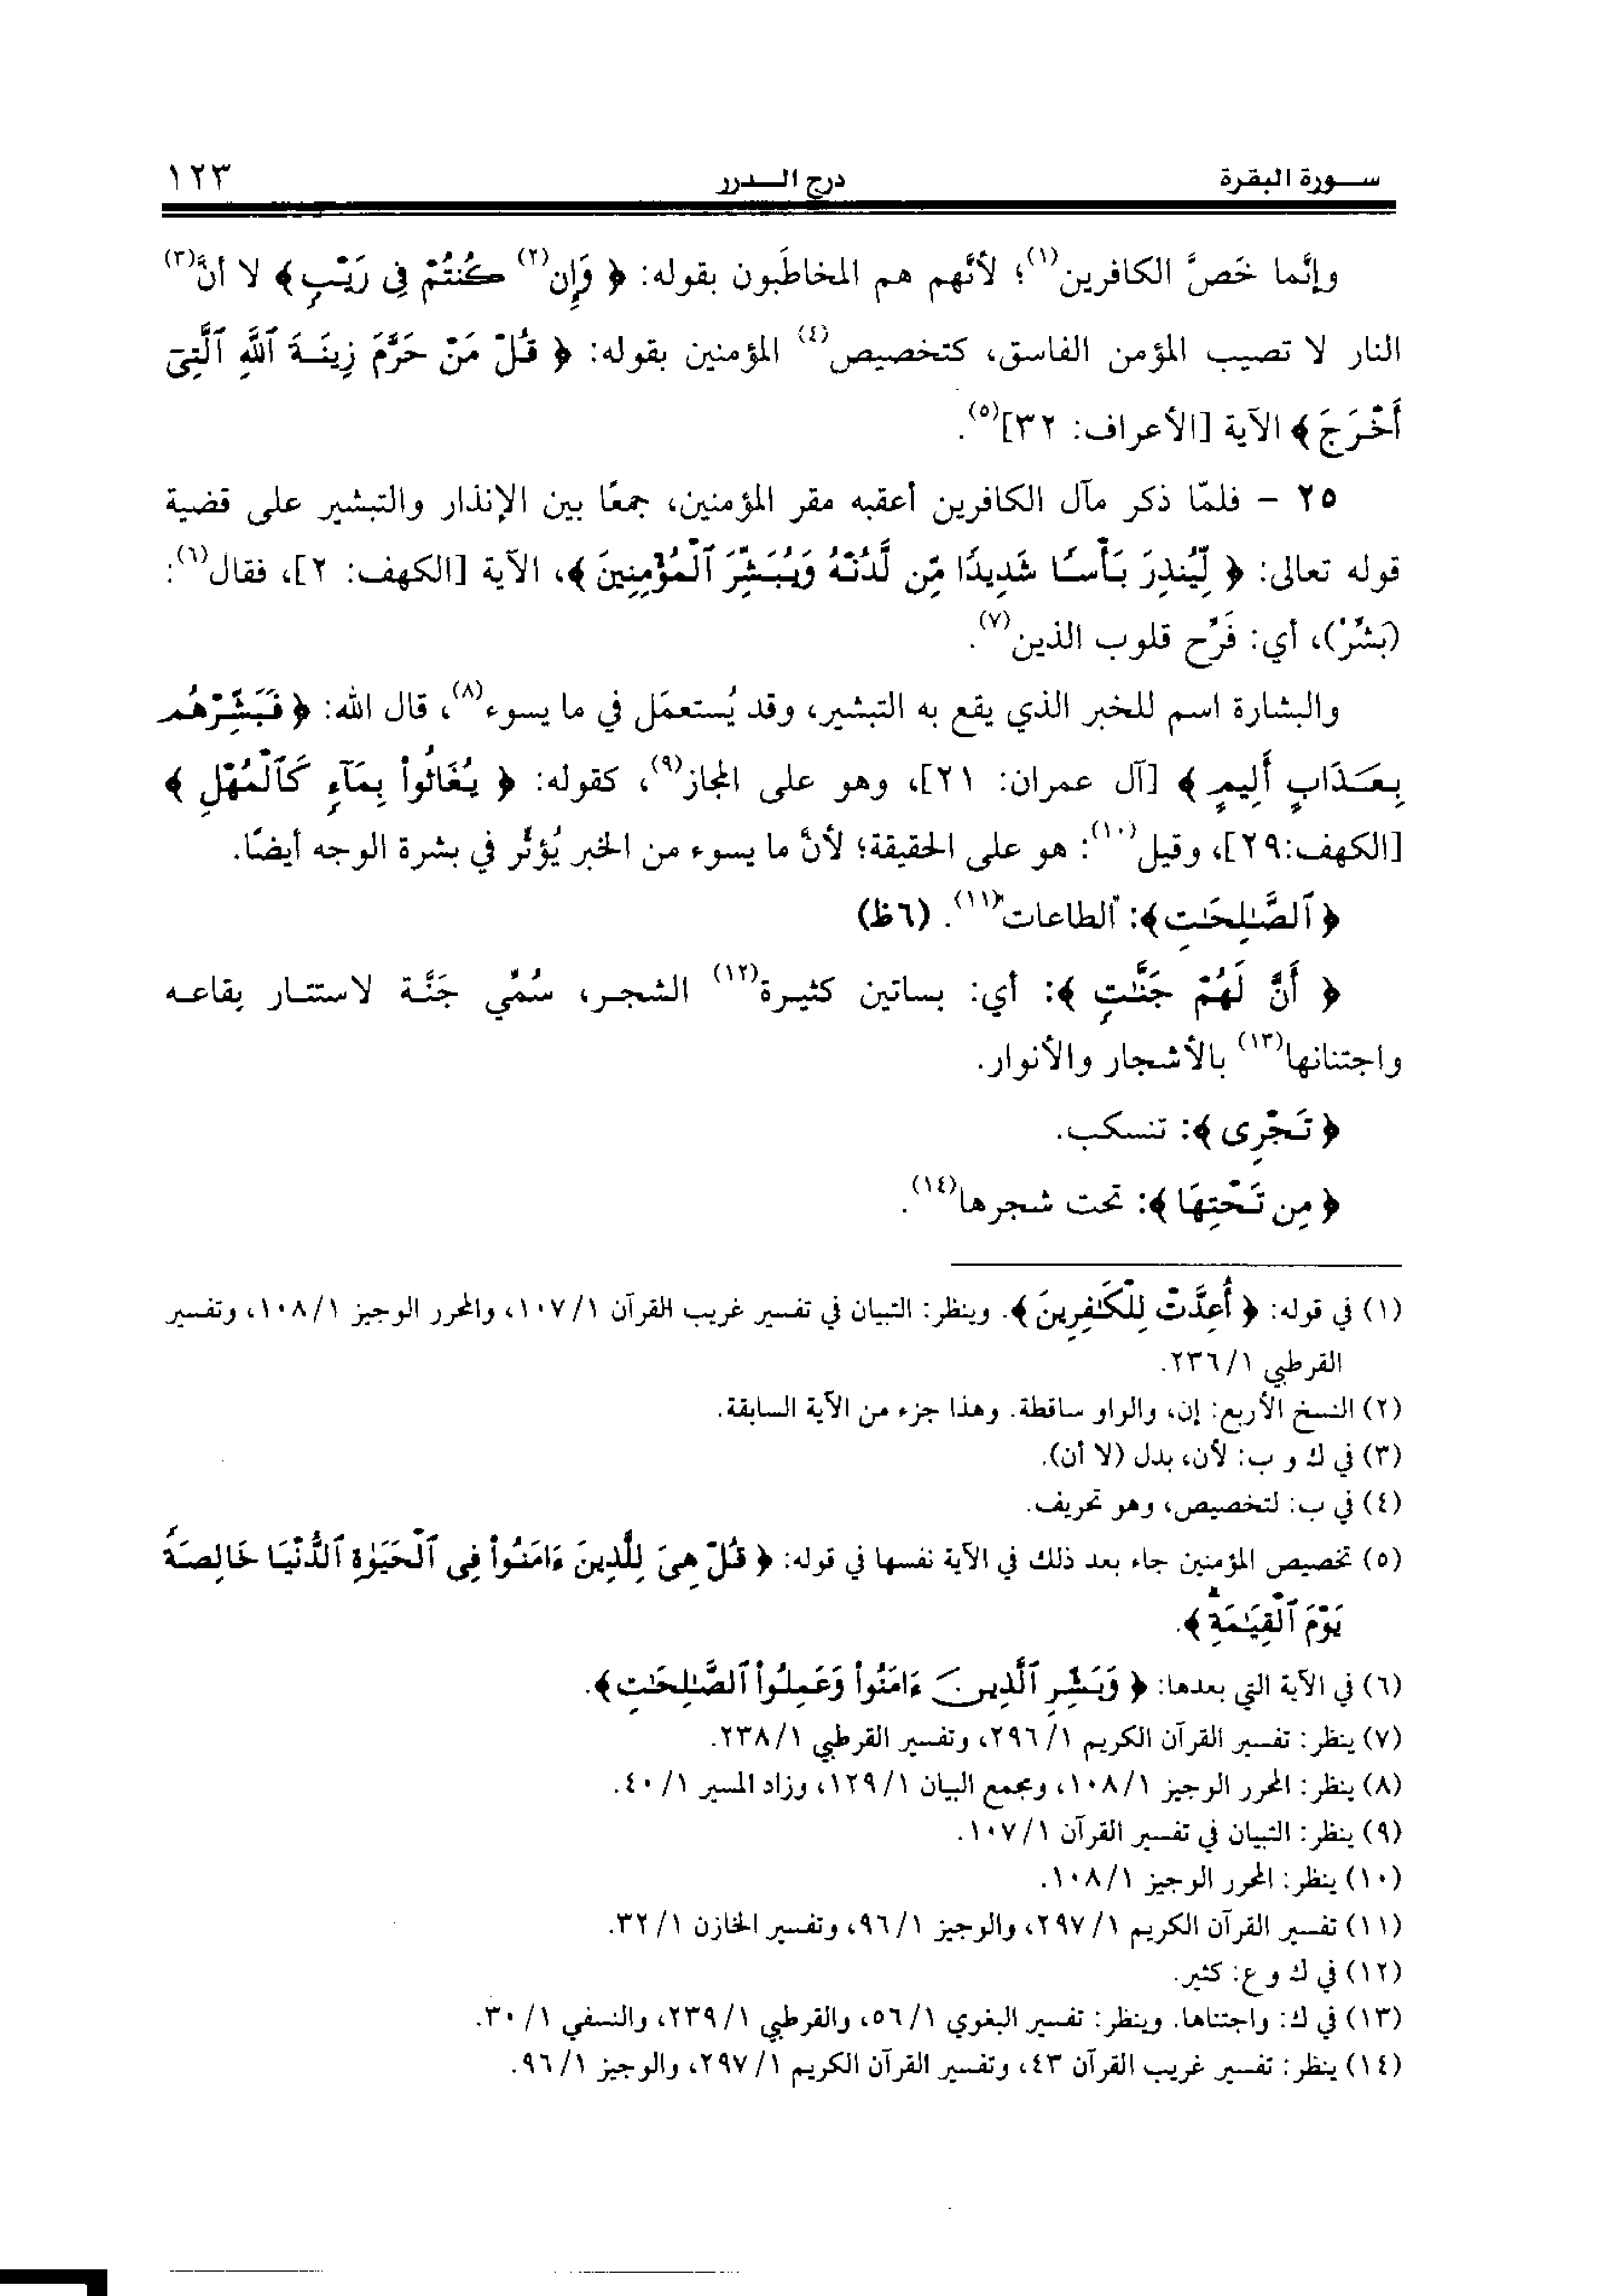 سـورة البقرة درج الــدرر ١٢٣
وإنَّما خَصَّ الكافرين(١)؛ لأنَّهم هم المخاطَبون بقوله: ﴿ وَإِن(٢) كُنتُمْ فِى رَيْبٍ ﴾ لا أنَّ(٣)
النار لا تصيب المؤمن الفاسق، كتخصيص(٤) المؤمنين بقوله: ﴿ قُلْ مَنْ حَرَّمَ زِينَةَ ٱللَّهِ ٱلَّتِىٓ
أَخْرَجَ ﴾ الآية [الأعراف: ٣٢](٥).
٢٥ - فلمّا ذكر مآل الكافرين أعقبه مقر المؤمنين، جمعًا بين الإنذار والتبشير على قضية
قوله تعالى: ﴿ لِّيُنذِرَ بَأْسًا شَدِيدًا مِّن لَّدُنْهُ وَيُبَشِّرَ ٱلْمُؤْمِنِينَ ﴾، الآية [الكهف: ٢]، فقال(٦):
(بشِّرْ)، أي: فَرِّح قلوب الذين(٧).
والبشارة اسم للخبر الذي يقع به التبشير، وقد يُستعمَل في ما يسوء(٨)، قال الله: ﴿ فَبَشِّرْهُم
بِعَذَابٍ أَلِيمٍ ﴾ [آل عمران: ٢١]، وهو على المجاز(٩)، كقوله: ﴿ يُغَاثُوا۟ بِمَآءٍ كَٱلْمُهْلِ ﴾
[الكهف:٢٩]، وقيل(١٠): هو على الحقيقة؛ لأنَّ ما يسوء من الخبر يُؤثِّر في بشرة الوجه أيضًا.
﴿ ٱلصَّـٰلِحَـٰتِ ﴾: الطاعات(١١). (٦ظ)
﴿ أَنَّ لَهُمْ جَنَّـٰتٍ ﴾: أي: بساتين كثيرة(١٢) الشجر، سُمِّي جَنَّة لاستتار بقاعه
واجتنانها(١٣) بالأشجار والأنوار.
﴿ تَجْرِى ﴾: تنسكب.
﴿ مِن تَحْتِهَا ﴾: تحت شجرها(١٤).
(١) في قوله: ﴿ أُعِدَّتْ لِلْكَـٰفِرِينَ ﴾. وينظر: التبيان في تفسير غريب القرآن ١/ ١٠٧، والمحرر الوجيز ١/ ١٠٨، وتفسير
القرطبي ١/ ٢٣٦.
(٢) النسخ الأربع: إن، والواو ساقطة. وهذا جزء من الآية السابقة.
(٣) في ك و ب: لأن، بدل (لا أن).
(٤) في ب: لتخصيص، وهو تحريف.
(٥) تخصيص المؤمنين جاء بعد ذلك في الآية نفسها في قوله: ﴿ قُلْ هِىَ لِلَّذِينَ ءَامَنُوا۟ فِى ٱلْحَيَوٰةِ ٱلدُّنْيَا خَالِصَةً
يَوْمَ ٱلْقِيَـٰمَةِ ۗ﴾.
(٦) في الآية التي بعدها: ﴿ وَبَشِّرِ ٱلَّذِينَ ءَامَنُوا۟ وَعَمِلُوا۟ ٱلصَّـٰلِحَـٰتِ ﴾.
(٧) ينظر: تفسير القرآن الكريم ١/ ٢٩٦، وتفسير القرطبي ١/ ٢٣٨.
(٨) ينظر: المحرر الوجيز ١/ ١٠٨، ومجمع البيان ١/ ١٢٩، وزاد المسير ١/ ٤٠.
(٩) ينظر: التبيان في تفسير القرآن ١/ ١٠٧.
(١٠) ينظر: المحرر الوجيز ١/ ١٠٨.
(١١) تفسير القرآن الكريم ١/ ٢٩٧، والوجيز ١/ ٩٦، وتفسير الخازن ١/ ٣٢.
(١٢) في ك و ع: كثير.
(١٣) في ك: واجتناها. وينظر: تفسير البغوي ١/ ٥٦، والقرطبي ١/ ٢٣٩، والنسفي ١/ ٣٠.
(١٤) ينظر: تفسير غريب القرآن ٤٣، وتفسير القرآن الكريم ١/ ٢٩٧، والوجيز ١/ ٩٦.